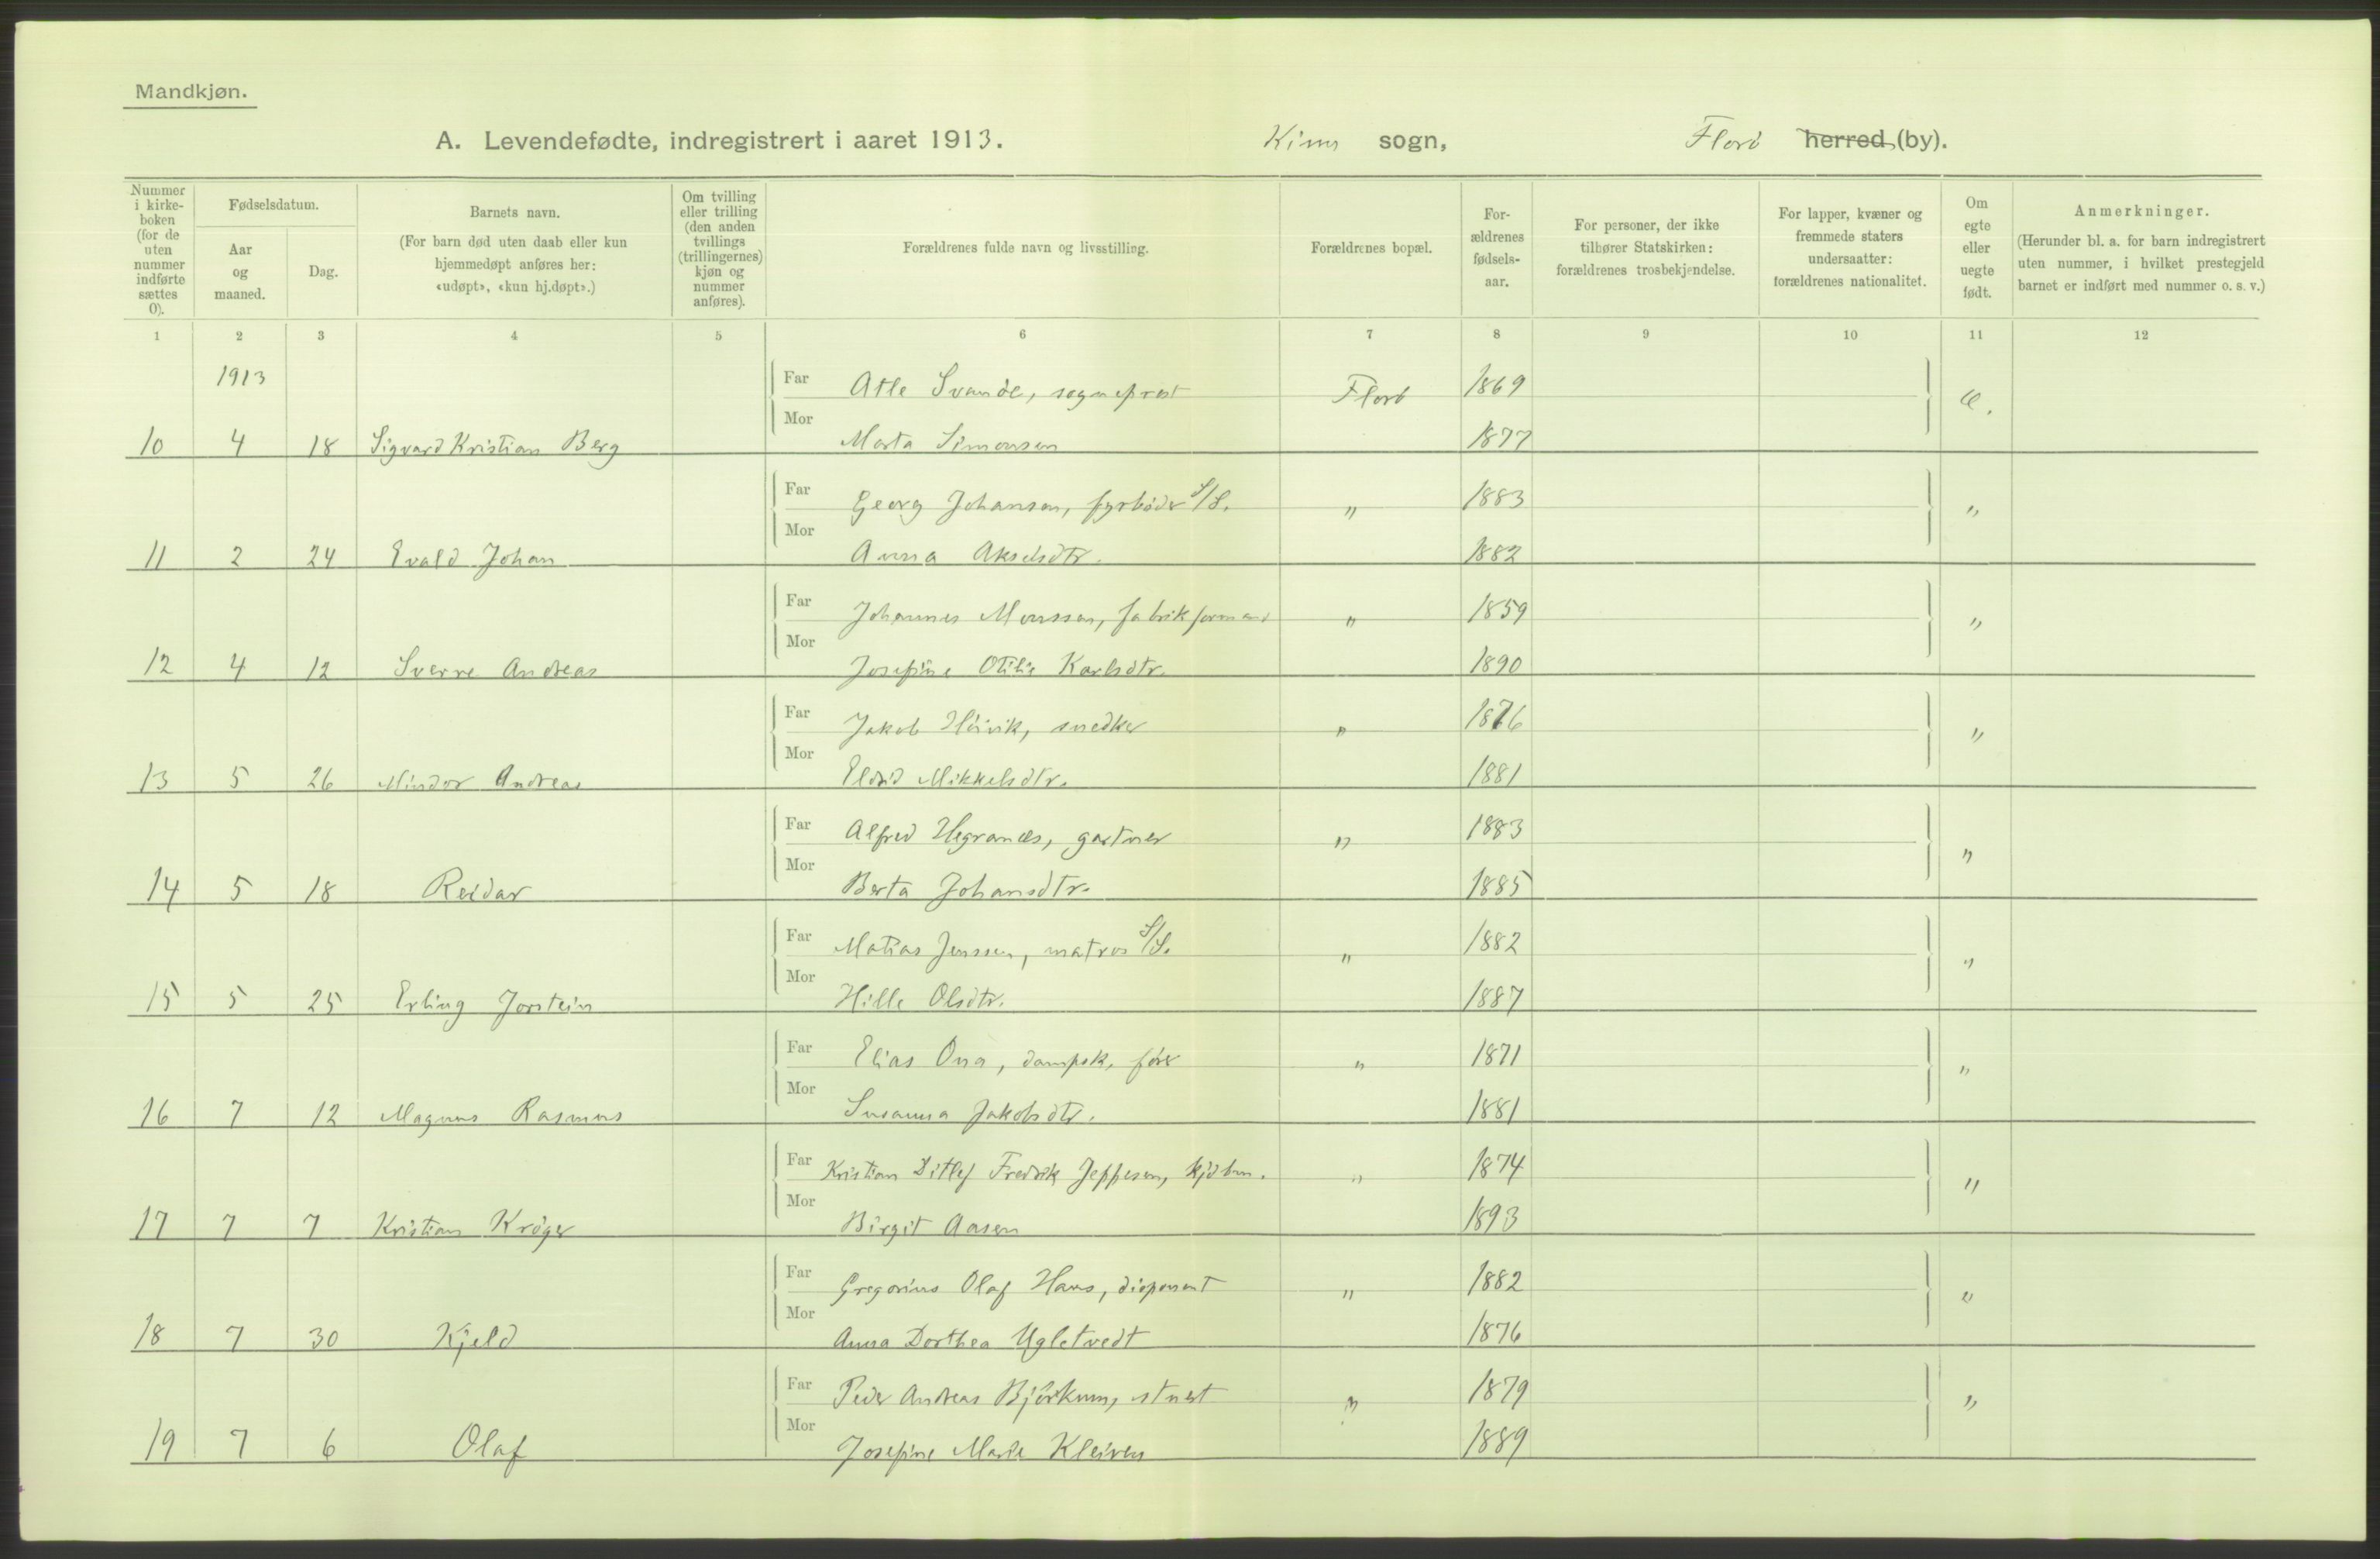 Mandkjøn.
A. Levendefødte, indregistrert i aaret 1913. Kinn sogn, Florö herred (by).
Nummer i kirke-boken (for de uten nummer indførte sættes 0).
Fødselsdatum.
Aar og maaned.
Dag.
Barnets navn.
(For barn død uten daab eller kun hjemmedøpt anføres her: «udøpt», «kun hj.døpt».)
Om tvilling eller trilling (den anden tvillings (trillingernes) kjøn og nummer anføres).
Forældrenes fulde navn og livsstilling.
Forældrenes bopæl.
For-ældrenes fødsels-aar.
For personer, der ikke tilhører Statskirken: forældrenes trosbekjendelse.
For lapper, kvæner og fremmede staters undersaatter: forældrenes nationalitet.
Om egte eller uegte født.
Anmerkninger.
(Herunder bl. a. for barn indregistrert uten nummer, i hvilket prestegjeld barnet er indført med nummer o. s. v.)
1 2 3 4 5 6 7 8 9 10 11 12
1913
Far Atle Svande, sogneprest Florö 1869 e.
10 4 18 Sigvard Kristian Berg Mor Marta Simonsen 1877
Far Georg Johansen, fyrböder S/S. " 1883 "
11 2 24 Evald Johan Mor Anna Akselsdtr. 1882
Far Johannes Monssen, fabrikformand " 1859 "
12 4 12 Sverre Andreas Mor Josefine Otilie Karlsdtr. 1890
Far Jakob Höivik, snedker " 1876 "
13 5 26 Mindor Andreas Mor Eldrid Mikkelsdtr. 1881
Far Alfred Hegranæs, gartner " 1883 "
14 5 18 Reidar Mor Berta Johansdtr. 1885
Far Matias Jenssen, matros S/S. " 1882 "
15 5 25 Erling Jorstein Mor Hille Olsdtr. 1887
Far Elias Ona, dampsk. förer " 1871 "
16 7 12 Magnus Rasmus Mor Susanna Jakobsdtr. 1881
Far Kristian Ditlef Fredrik Jeppesen, kjöbm. " 1874 "
17 7 7 Kristian Kröger Mor Birgit Aasen 1893
Far Gregorius Olaf Hans, disponent " 1882 "
18 7 30 Kjeld Mor Anna Dorthea Ugletvedt 1876
Far Peder Andreas Björkum, stuert " 1879 "
19 7 6 Olaf Mor Josefine Marie Kleiven 1889